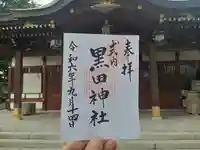 奉拝
式内
黒田神社
令和六年九月十四日